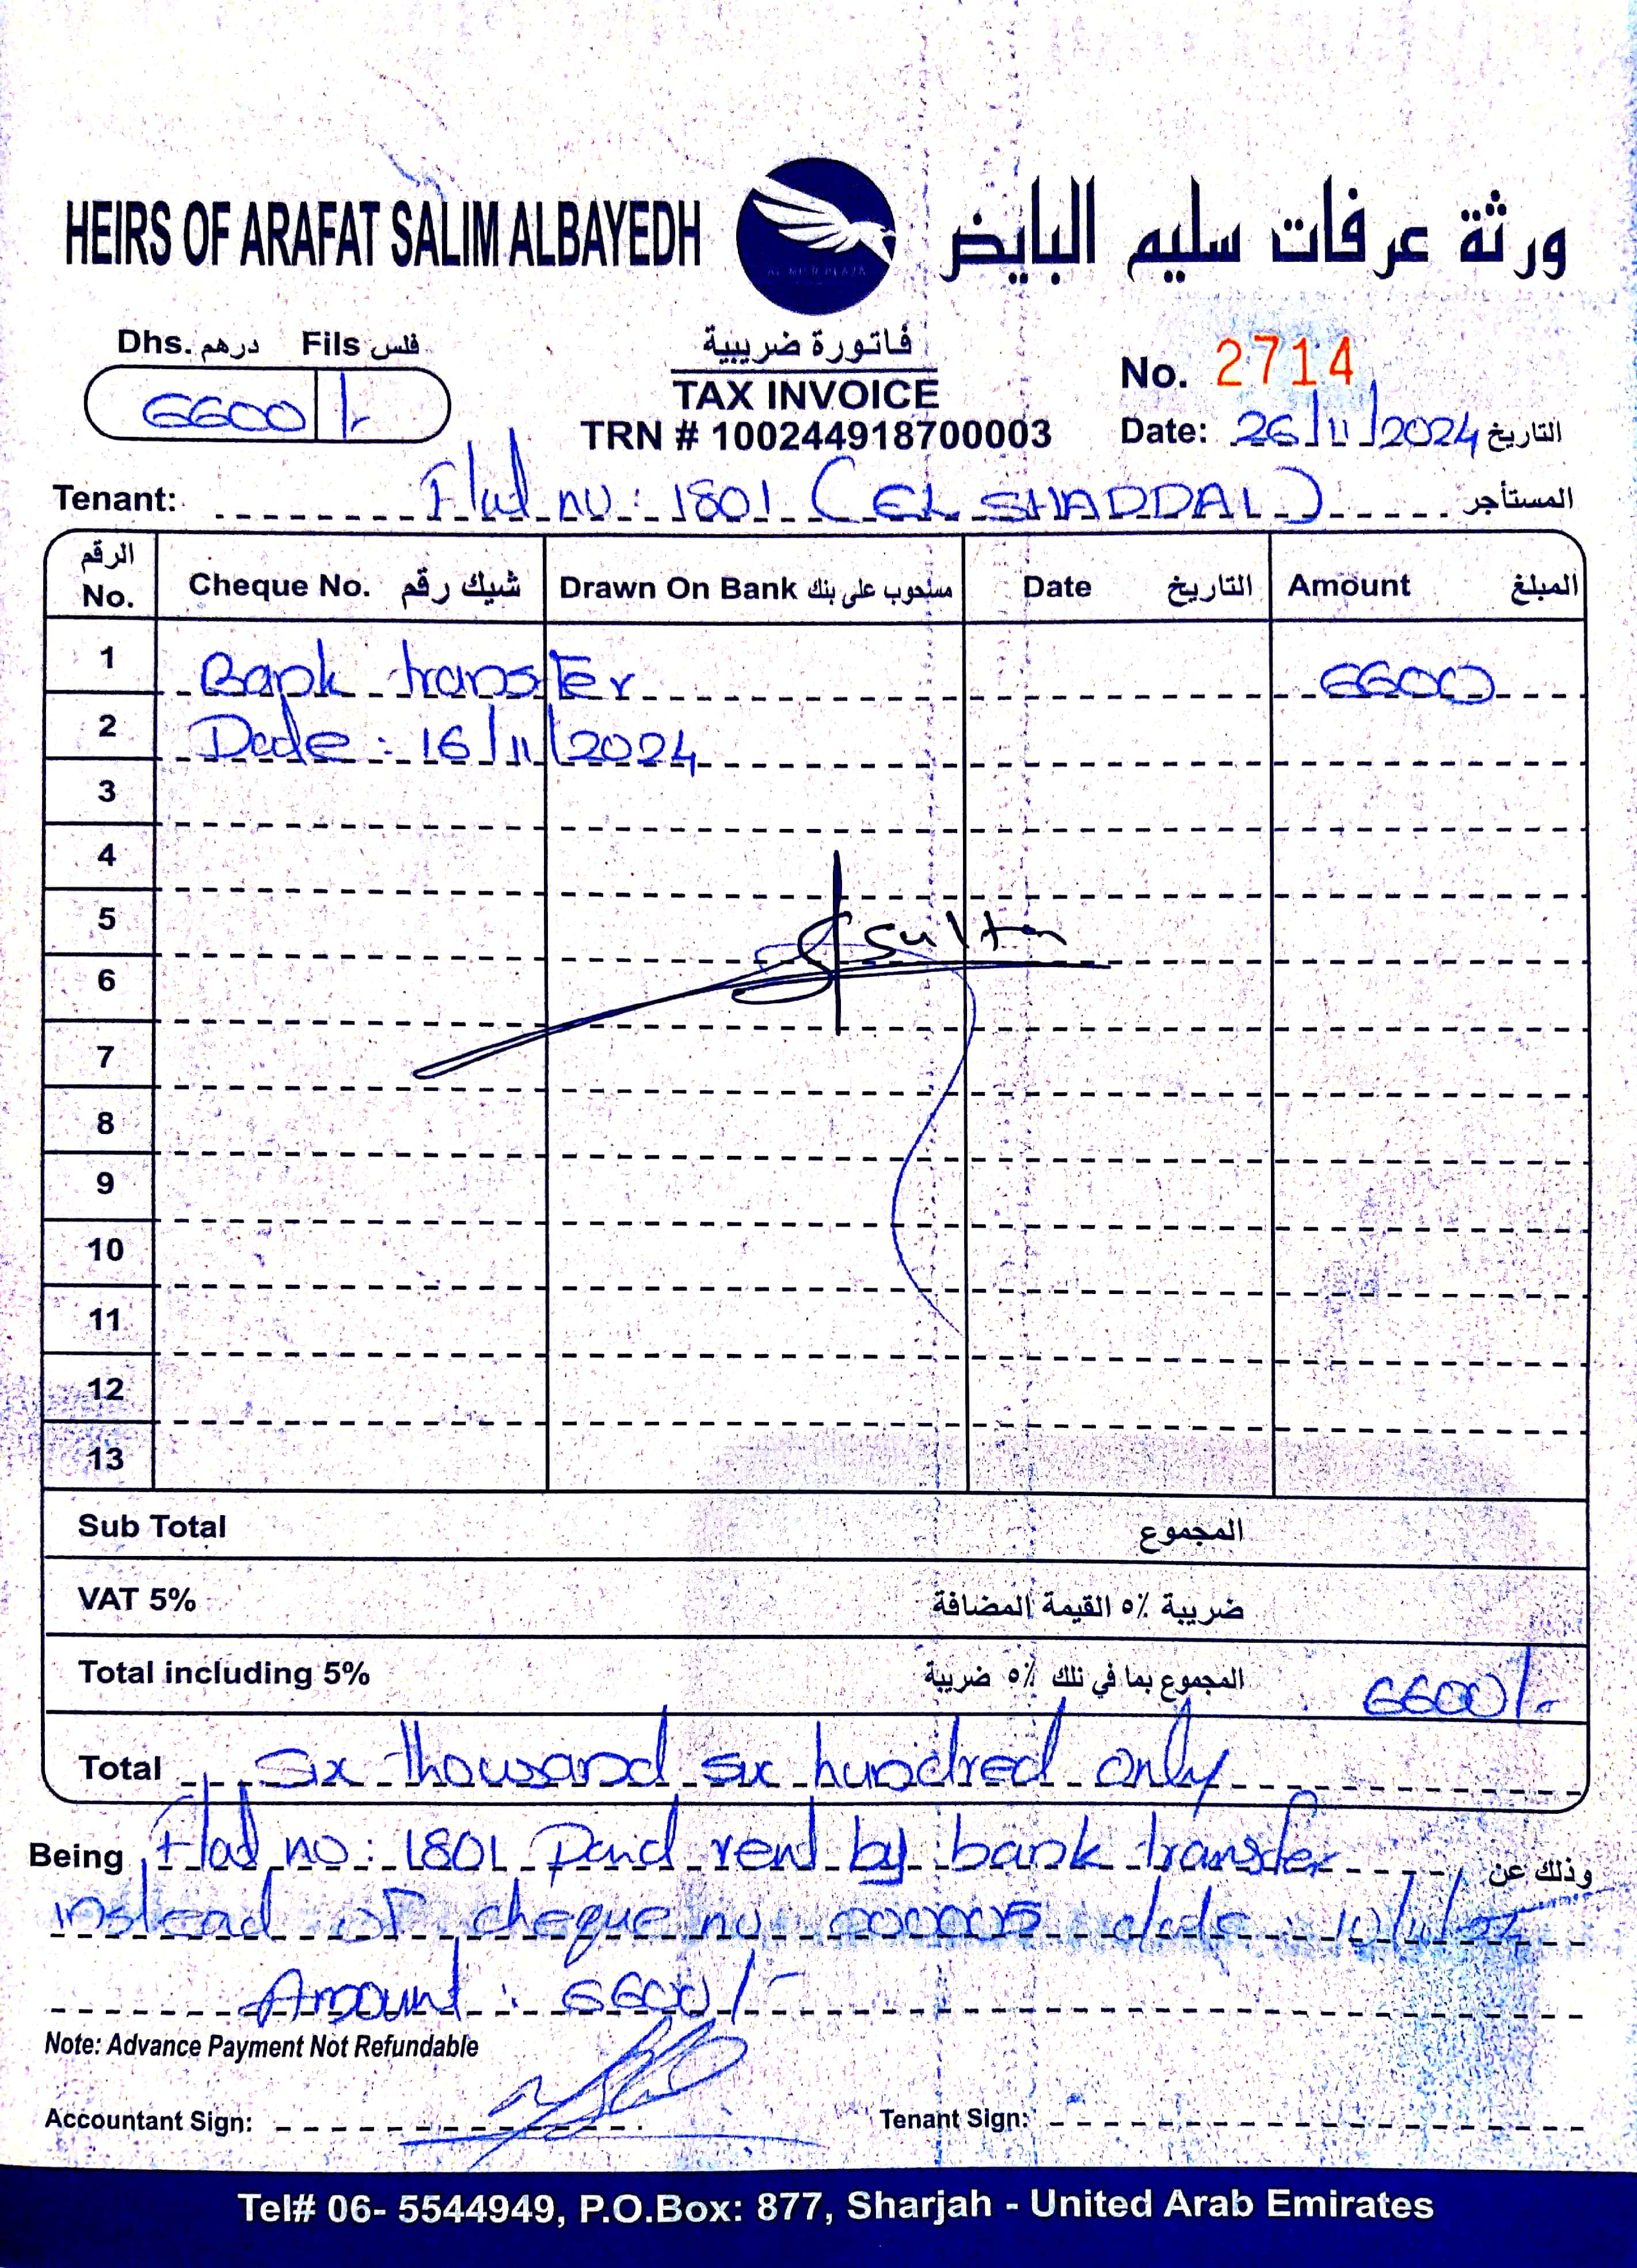 HEIRS OF ARAFAT SALIM ALBAYEDH
ورثة عرفات سليم البايض
Dhs. درهم Fils فلس
6600 /-
فاتورة ضريبية
TAX INVOICE
TRN # 100244918700003
No. 2714
Date: 26/11/2024 التاريخ
Tenant: Flat no: 1801 (EL SHADDAI) المستأجر
الرقم No. Cheque No. شيك رقم Drawn On Bank مسحوب على بنك Date التاريخ Amount المبلغ
1 Bank transfer 6600
2 Date: 16/11/2024
3
4
5 Sultan
6
7
8
9
10
11
12
13
Sub Total المجموع
VAT 5% ضريبة ٥٪ القيمة المضافة
Total including 5% المجموع بما في ذلك ٥٪ ضريبة 6600/-
Total Six thousand six hundred only
Being Flat no: 1801 Paid rent by bank transfer وذلك عن
instead of cheque no 000005 date: 10/11/24
Amount: 6600/-
Note: Advance Payment Not Refundable
Accountant Sign: Tenant Sign:
Tel# 06- 5544949, P.O.Box: 877, Sharjah - United Arab Emirates